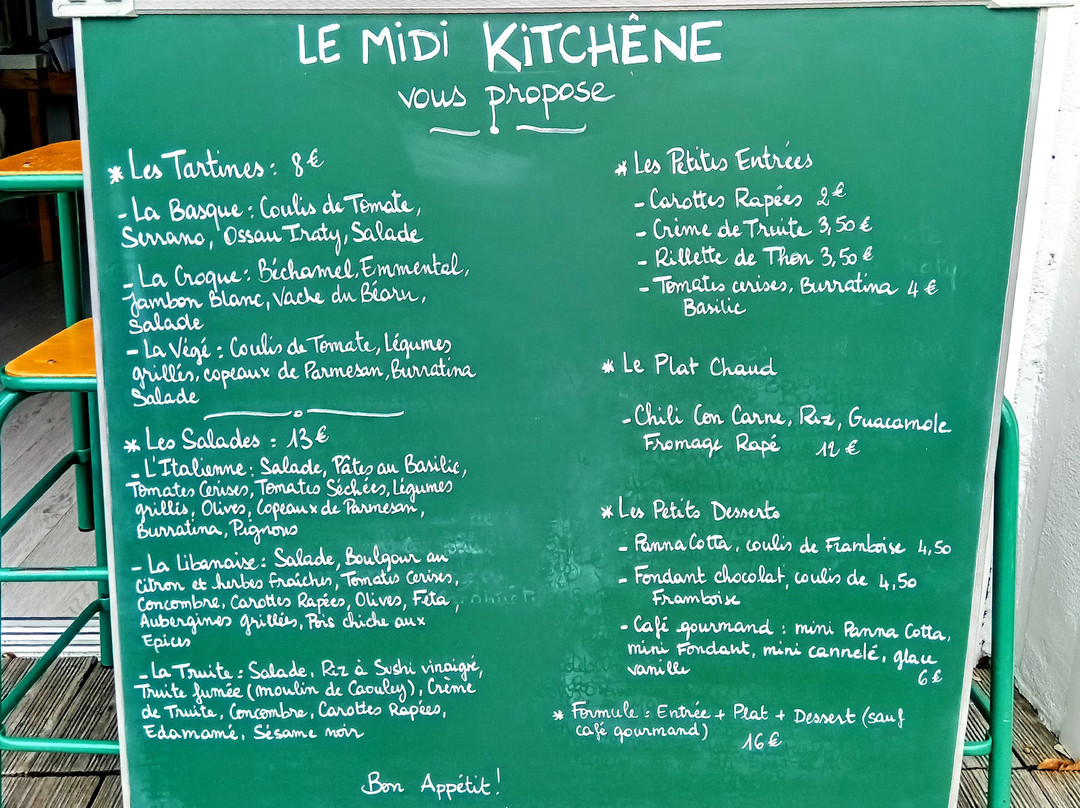 LE MiDi KiTCHÊNE
vous propose
* Les Tartines : 8 €
- La Basque : Coulis de Tomate,
Serrano, Ossau Iraty, Salade
- La Croque : Béchamel, Emmental,
Jambon Blanc, Vache du Béarn,
Salade
- La Végé : Coulis de Tomate, Légumes
grillés, copeaux de Parmesan, Burratina
Salade
* Les Salades : 13 €
- L'Italienne : Salade, Pâtes au Basilic,
Tomates Cerises, Tomates Séchées, Légumes
grillés, Olives, Copeaux de Parmesan,
Burratina, Pignons
- La Libanaise : Salade, Boulgour au
citron et herbes fraîches, Tomates Cerises,
Concombre, Carottes Rapées, Olives, Féta,
Aubergines grillées, Pois chiche aux
Epices
- La Truite : Salade, Riz à Sushi vinaigré,
Truite fumée (moulin de Caouley), Crème
de Truite, Concombre, Carottes Rapées,
Edamamé, Sésame noir
* Les Petites Entrées
- Carottes Rapées 2 €
- Crème de Truite 3,50 €
- Rillette de Thon 3,50 €
- Tomates cerises, Burratina 4 €
Basilic
* Le Plat Chaud
- Chili Con Carne, Riz, Guacamole
Fromage Rapé 12 €
* Les Petits Desserts
- Panna Cotta, coulis de Framboise 4,50
- Fondant chocolat, coulis de 4,50
Framboise
- Café gourmand : mini Panna Cotta,
mini Fondant, mini cannelé, glace
vanille 6 €
* Formule : Entrée + Plat + Dessert (sauf
café gourmand) 16 €
Bon Appétit !